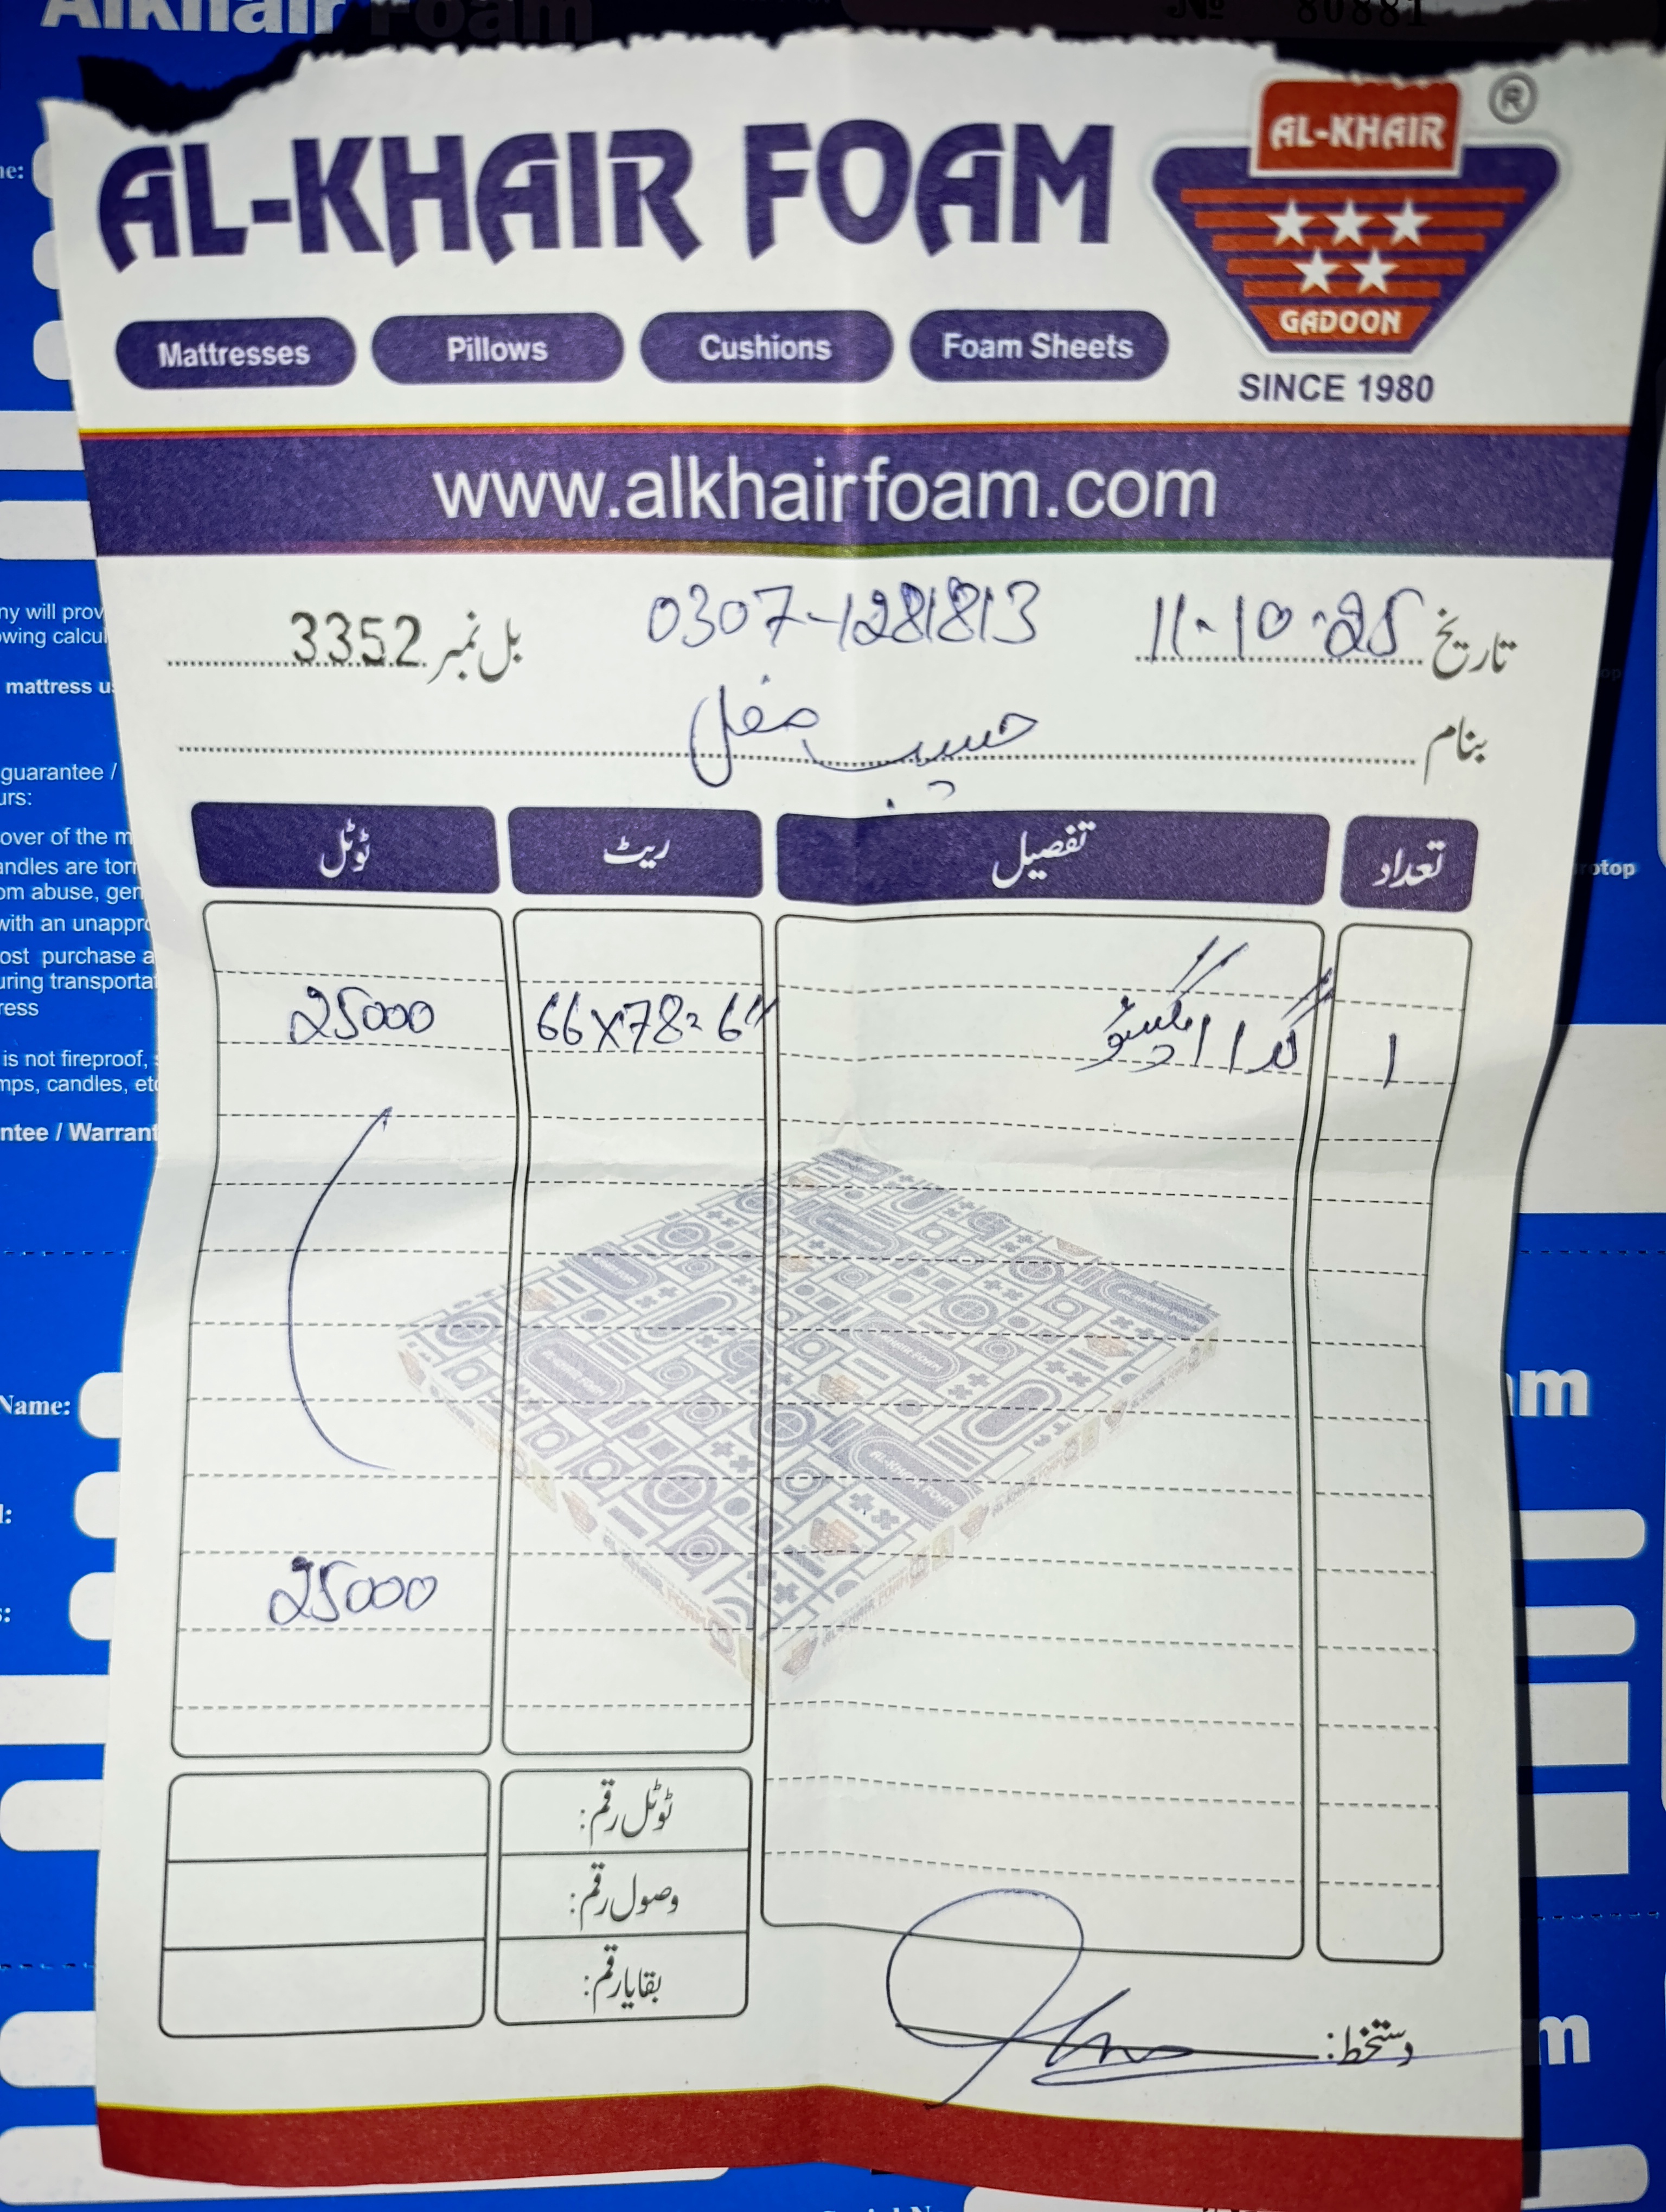 Alkhair Foam
№ 80881
AL-KHAIR FOAM
AL-KHAIR ®
GADOON
SINCE 1980
Mattresses Pillows Cushions Foam Sheets
www.alkhairfoam.com
تاریخ 11-10-25 0307-1281813 بل نمبر 3352
بنام حسیب مغل
تعداد تفصیل ریٹ ٹوٹل
1 گدا 66x78=6" 25000
25000
ٹوٹل رقم:
وصول رقم:
بقایا رقم:
دستخط:
ny will prov
owing calcul
mattress u
guarantee /
urs:
over of the m
andles are torn
om abuse, gen
with an unappro
ost purchase a
uring transportat
ress
is not fireproof,
mps, candles, etc
ntee / Warrant
Name:
otop
am
m